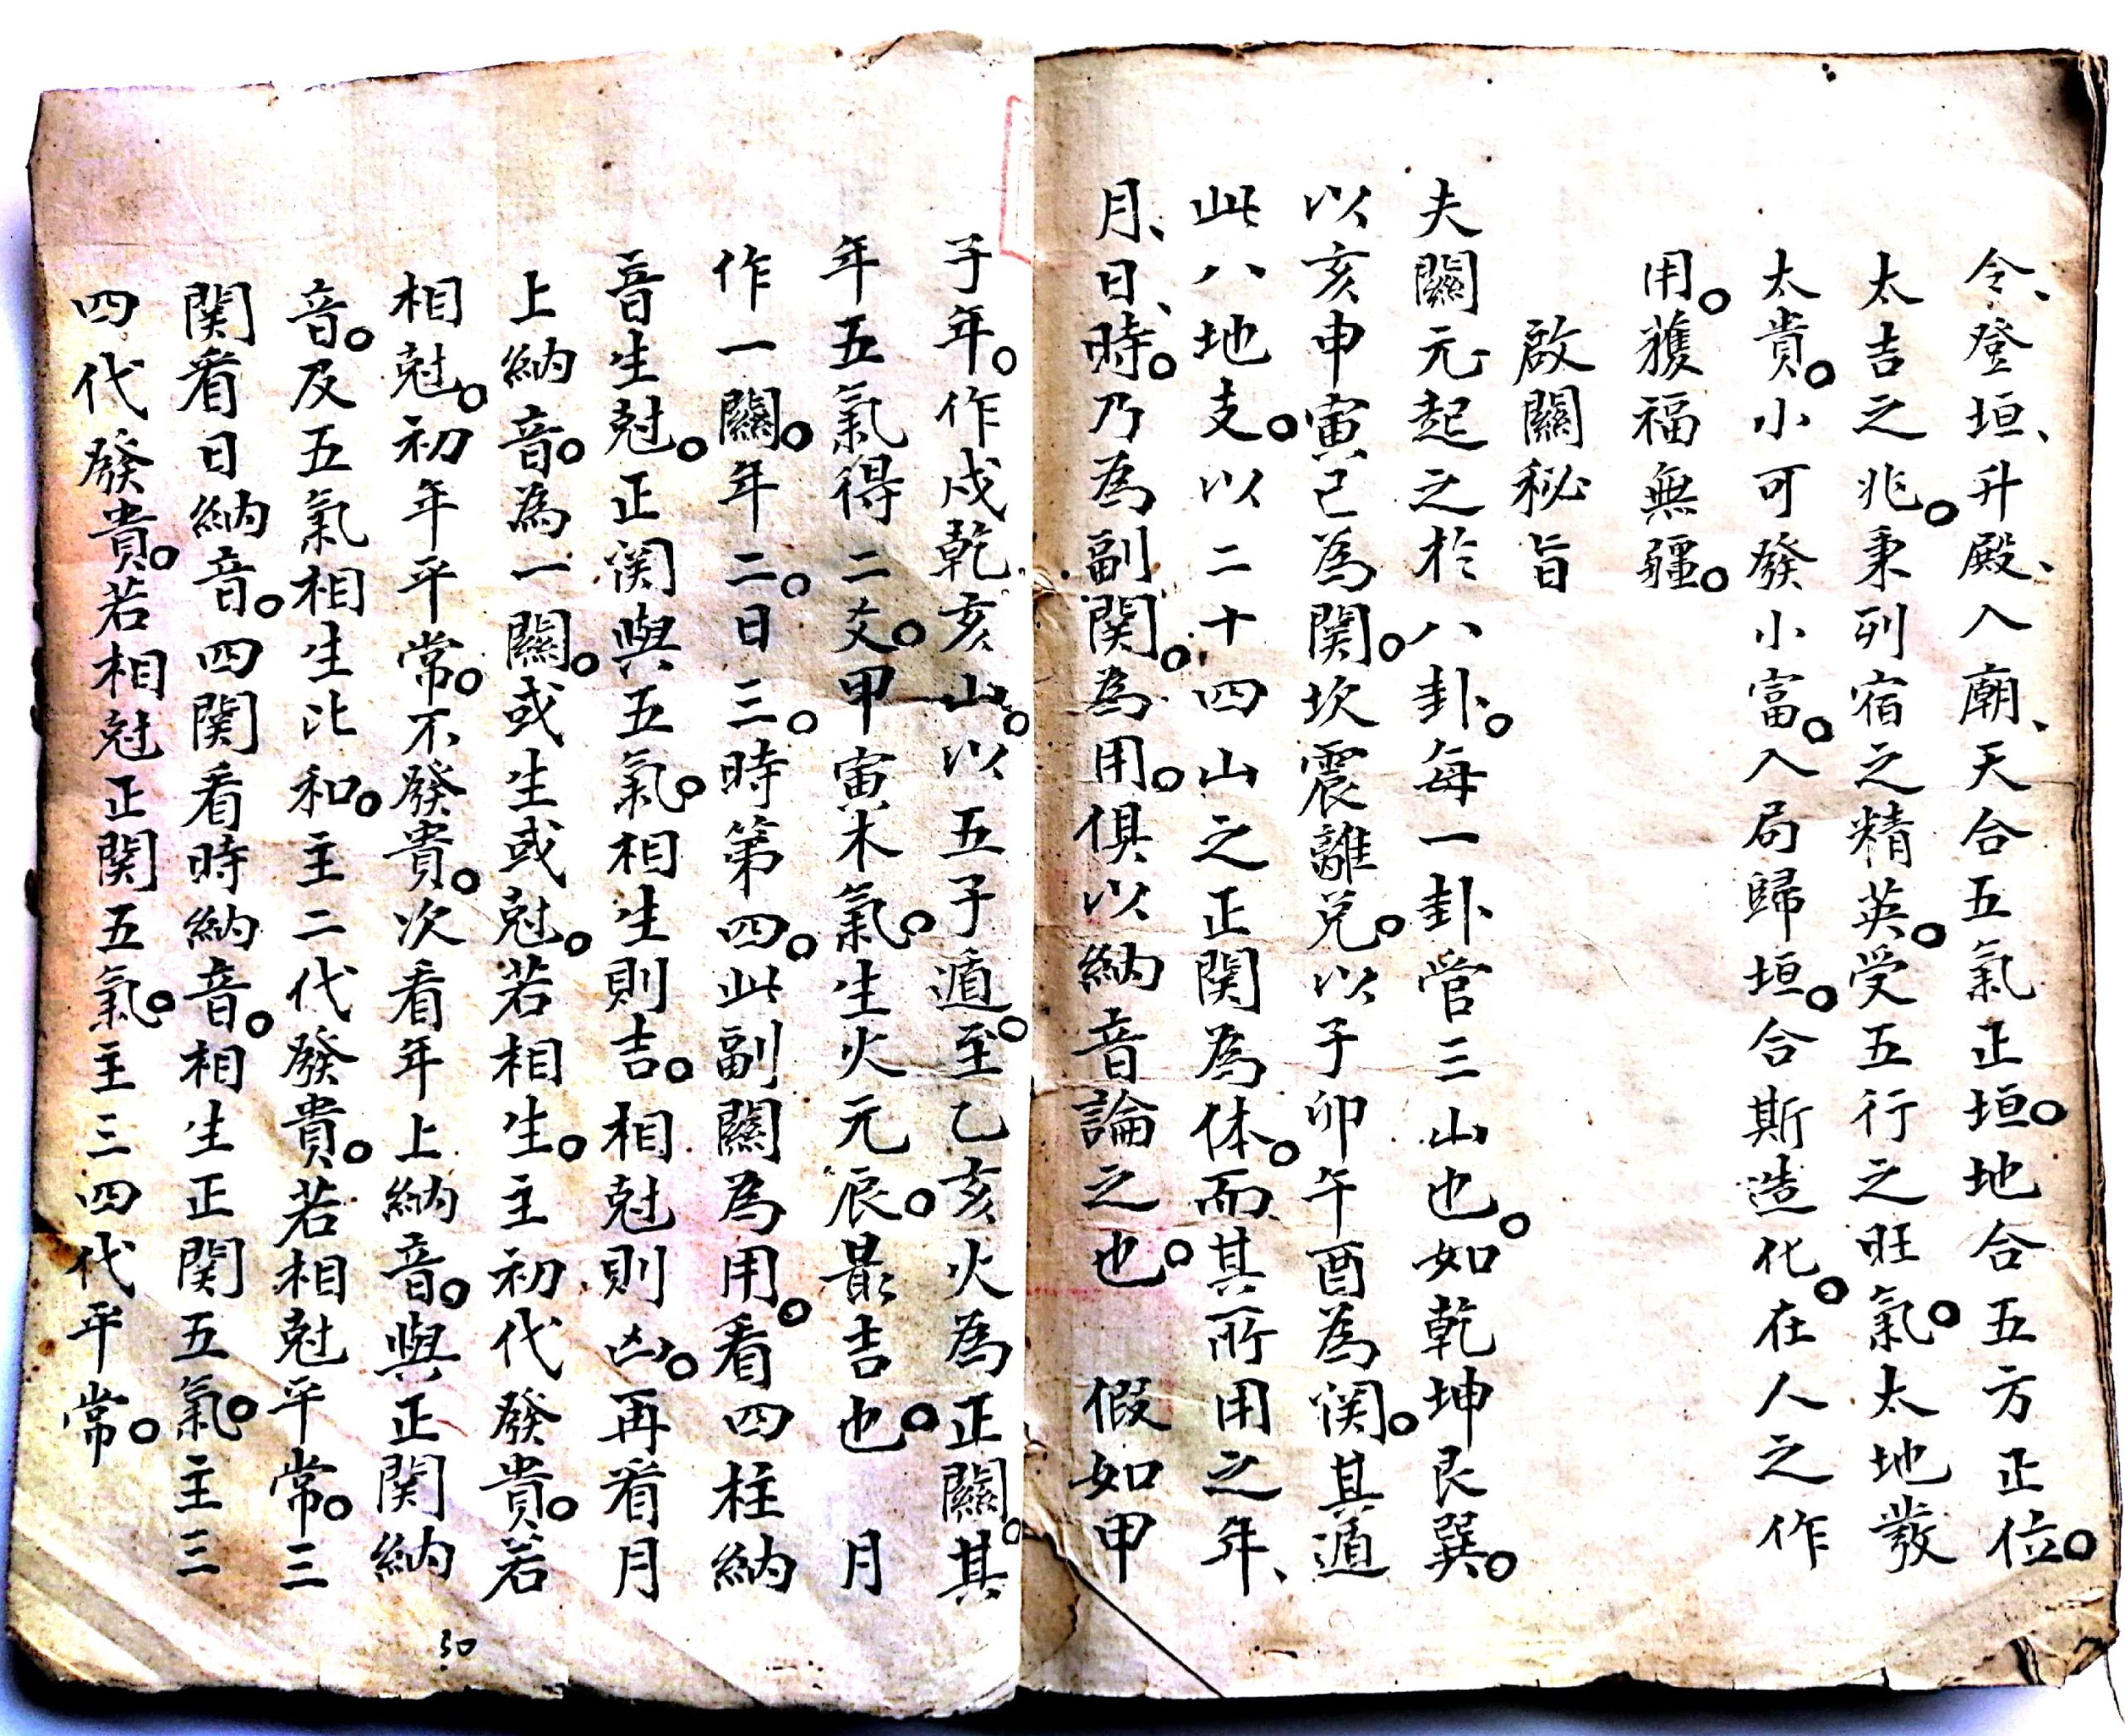 令、登垣、升殿、入廟、天合五氣正垣。地合五方正位。
太吉之兆。秉列宿之精英。受五行之旺氣。太地發
太貴。小可發小富。入局歸垣。合斯造化。在人之作
用。獲福無疆。
啟關秘旨
夫關元起之於八卦。每一卦管三山也。如乾坤艮巽。
以亥申寅巳為関。坎震離兌。以子卯午酉為関。其遁
此八地支。以二十四山之正関為体。而其所用之年、
月、日、時。乃為副関。為用。俱以納音論之也。 假如甲
子年。作戌乾亥山。以五子遁。至乙亥火為正關。其
年五氣得二爻。甲寅木氣。生火元辰。最吉也。 月
作一關。年二。日三。時第四。此副關為用。看四柱納
音生尅。正関與五氣。相生則吉。相尅則凶。再看月
上納音。為一關。或生或尅。若相生。主初代發貴。若
相尅。初年平常。不發貴。次看年上納音。與正関納
音。及五氣相生比和。主二代發貴。若相尅平常。三
関看日納音。四関看時納音。相生正関五氣。主三
四代發貴。若相尅正関五氣。主三四代平常。
30